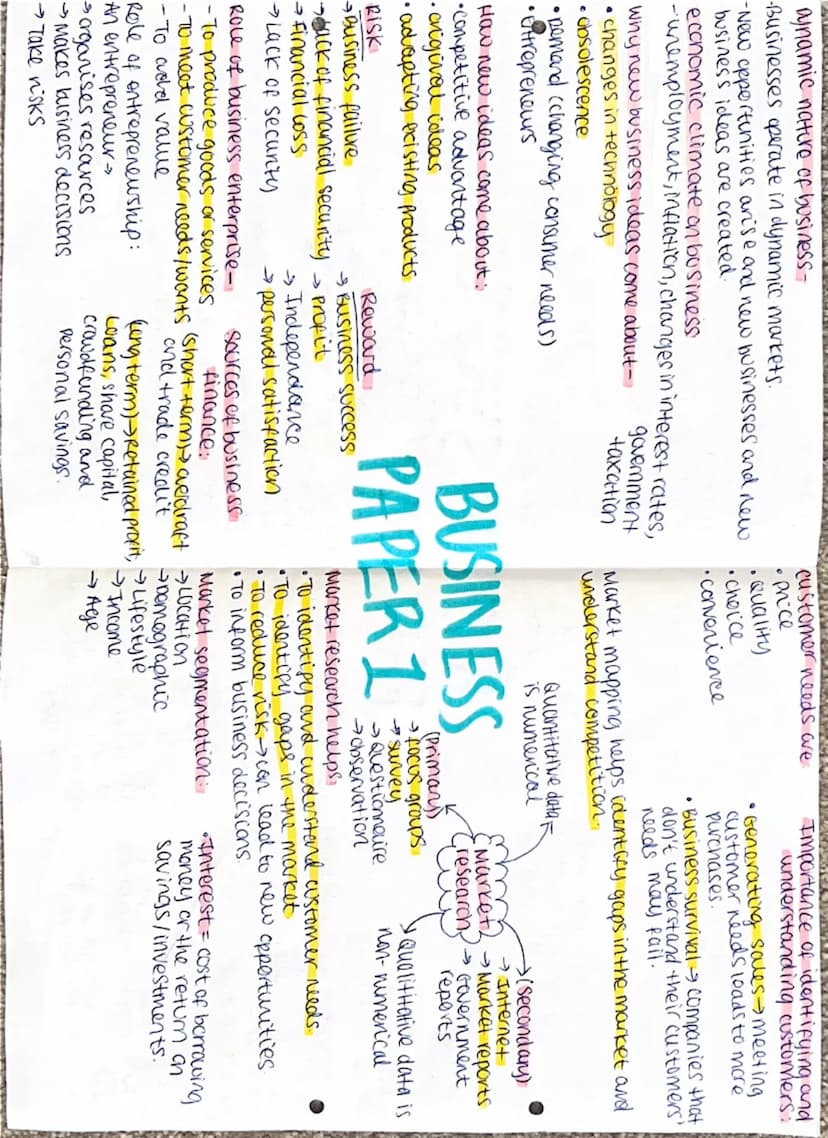 Dynamic nature of business-
-Businesses operate in dynamic markets.
-New opportunities arise and new businesses and new
business ideas are created.
economic climate on business
-unemployment, inflation, changes in interest rates,
government
taxation
Why new business ideas come about-
• changes in technology
• obsolescence
• Demand (changing consumer needs)
• entrepreneurs
How new ideas come about:
• competitive advantage
• original ideas
• adapting existing products
Risk
→ Business failure
→ Lack of financial security
→ financial loss
→ Lack of security
Reward
→ Business success
→ Profit
→ Independance
→ personal satisfaction
Role of business enterprise-
- To produce goods or services
- To meet customer needs/wants
- To add value
Role of entrepreneurship:
An entrepreneur→
→ organises resources
→ Makes business decisions
→ Take risks
Sources of business
finance:
(short term)→ overdraft
and trade credit
(long term)→ Retained profit,
Loans, share capital,
crowdfunding and
personal savings.
BUSINESS
PAPER 1
customer needs are:
• price
• quality
• choice
• convenience
Importance of identifying and
understanding customers:
• Generating sales → meeting
customer needs leads to more
purchases.
• Business survival → companies that
don't understand their customers'
needs may fail.
Market mapping helps identify gaps in the market and
understand competition.
Quantitative data
is numerical
Market
research
(secondary)
→ Internet
→ Market reports
→ Government
reports
(Primary)
→ focus groups
→ survey
→ questionnaire
→ observation
→ Qualititative data is
non-numerical
Market research helps:
• To identify and understand customer needs.
• To identify gaps in the market
• To reduce risk → can lead to new opportunities
• To inform business decisions.
Market segmentation:
→ Location
→ Demographic
→ Lifestyle
→ Income
→ Age
• Interest = cost of borrowing
money or the return on
savings/investments.